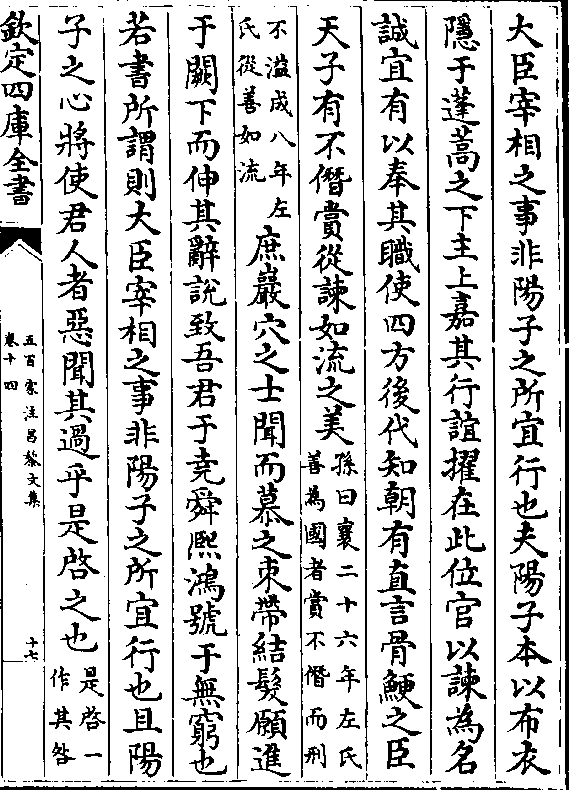 大臣宰相之事非陽子之所宜行也夫陽子本以布衣
隱于蓬蒿之下主上嘉其行誼擢在此位官以諫為名
誠宜有以奉其職使四方後代知朝有直言骨鯁之臣
天子有不僭賞從諫如流之美
孫曰襄二十六年左氏
善為國者賞不僭而刑
不濫成八年左
氏從善如流
庶巖穴之士聞而慕之束帶結髮願進
于闕下而伸其辭說致吾君于堯舜熙鴻號于無窮也
若書所謂則大臣宰相之事非陽子之所宜行也且陽
子之心將使君人者惡聞其過乎是啓之也
是啓一
作其咎
欽定四庫全書
五百家注昌黎文集
卷十四
十七